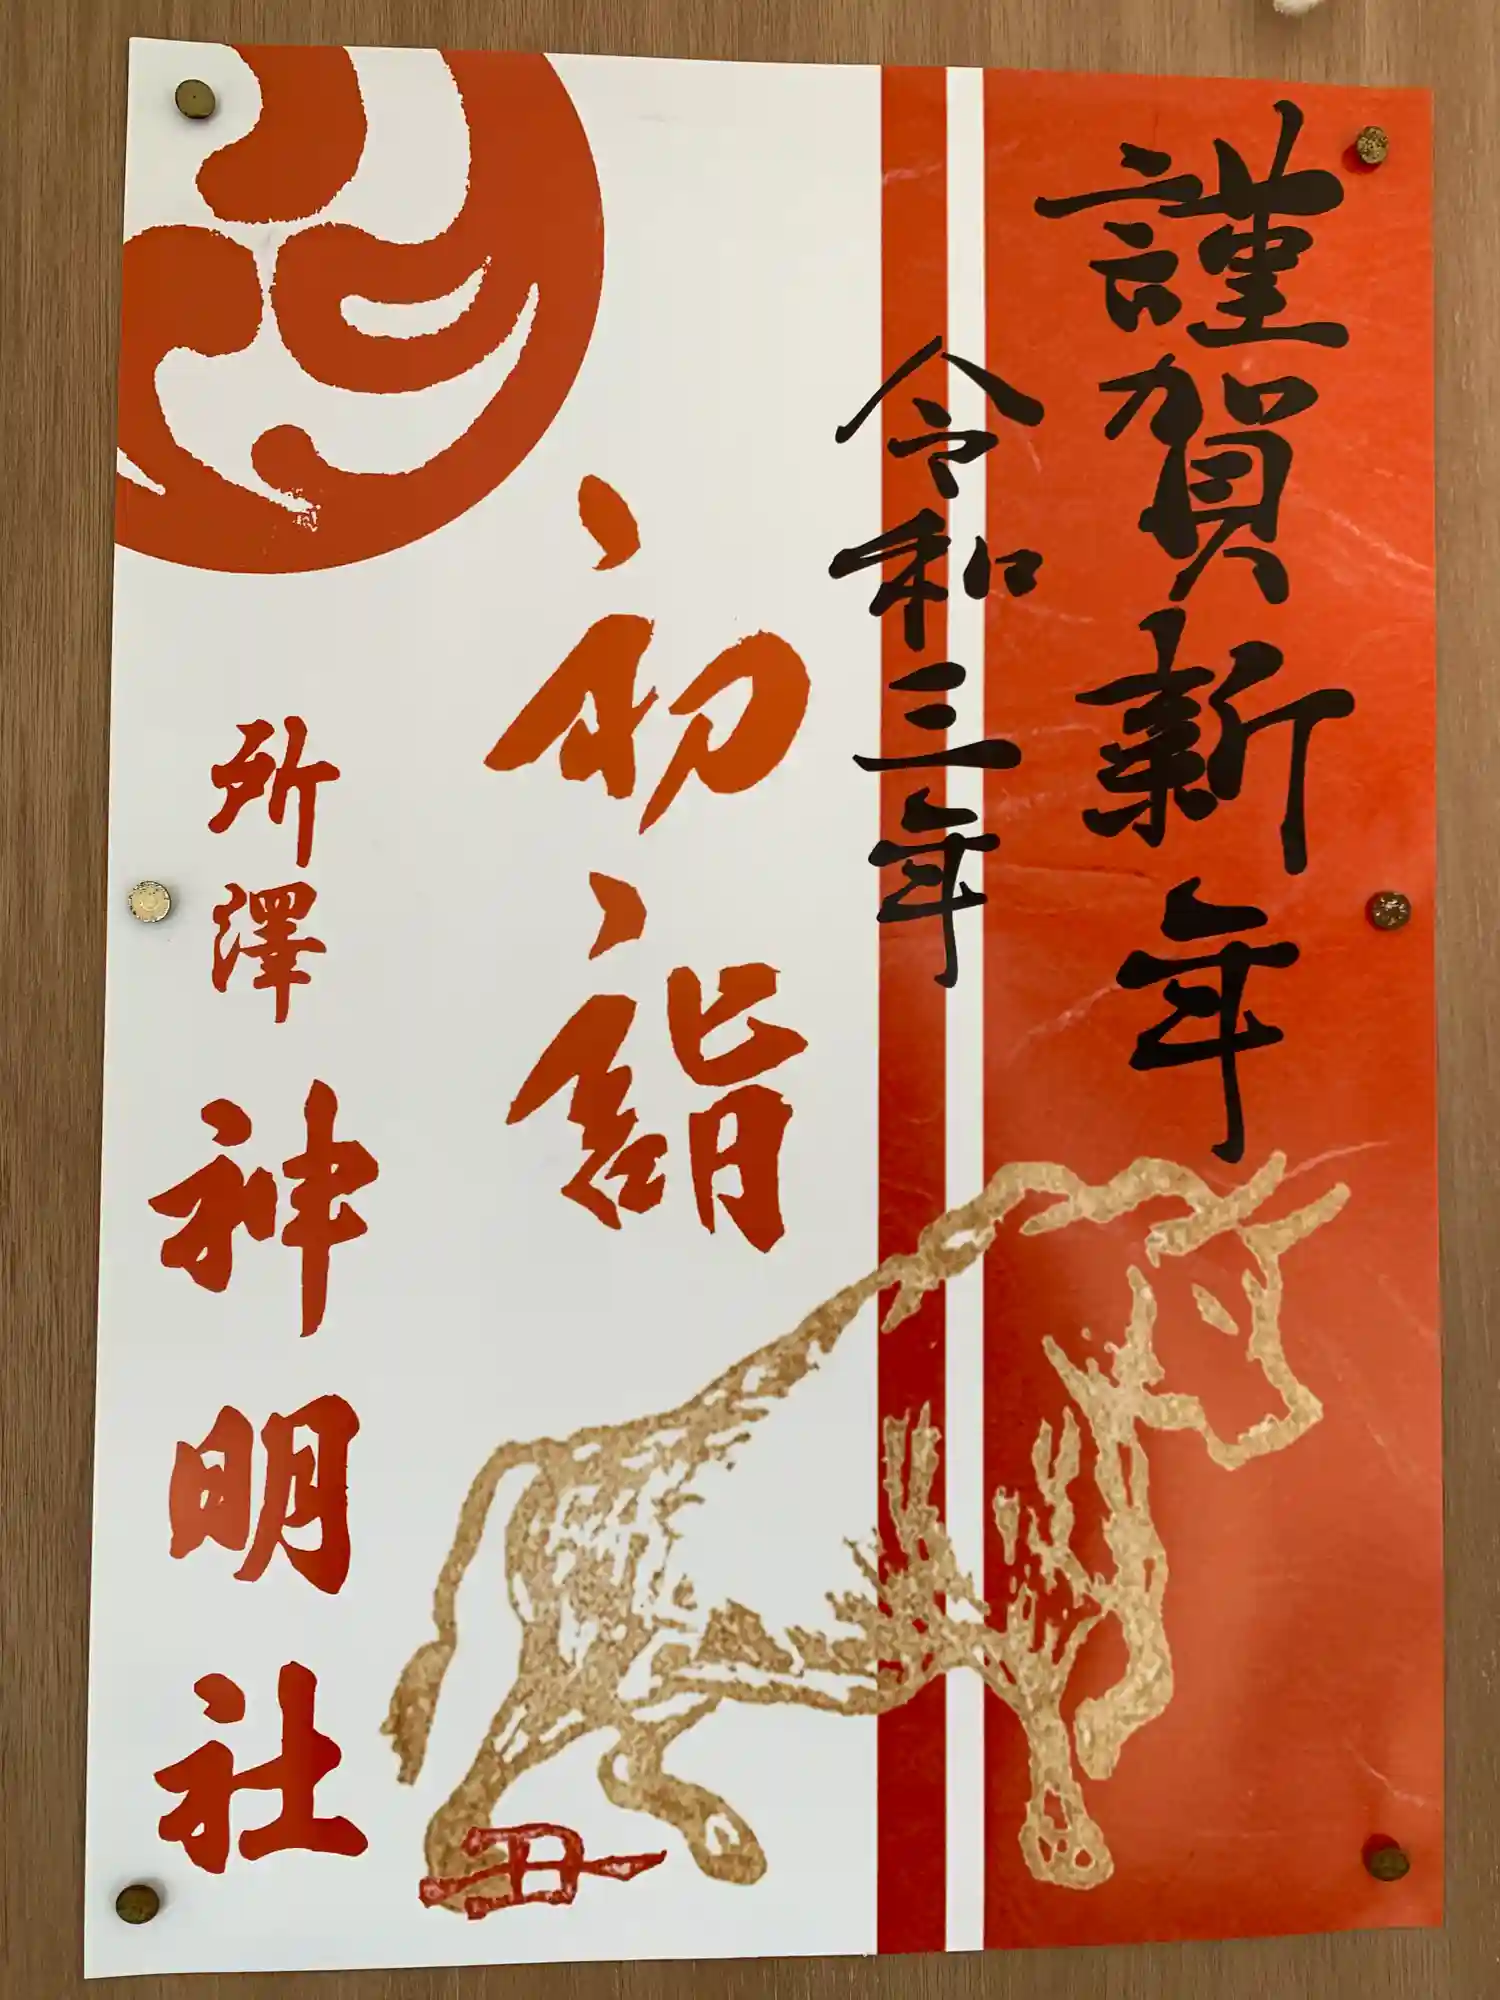 謹賀新年
令和三年
初詣
所澤神明社
丑